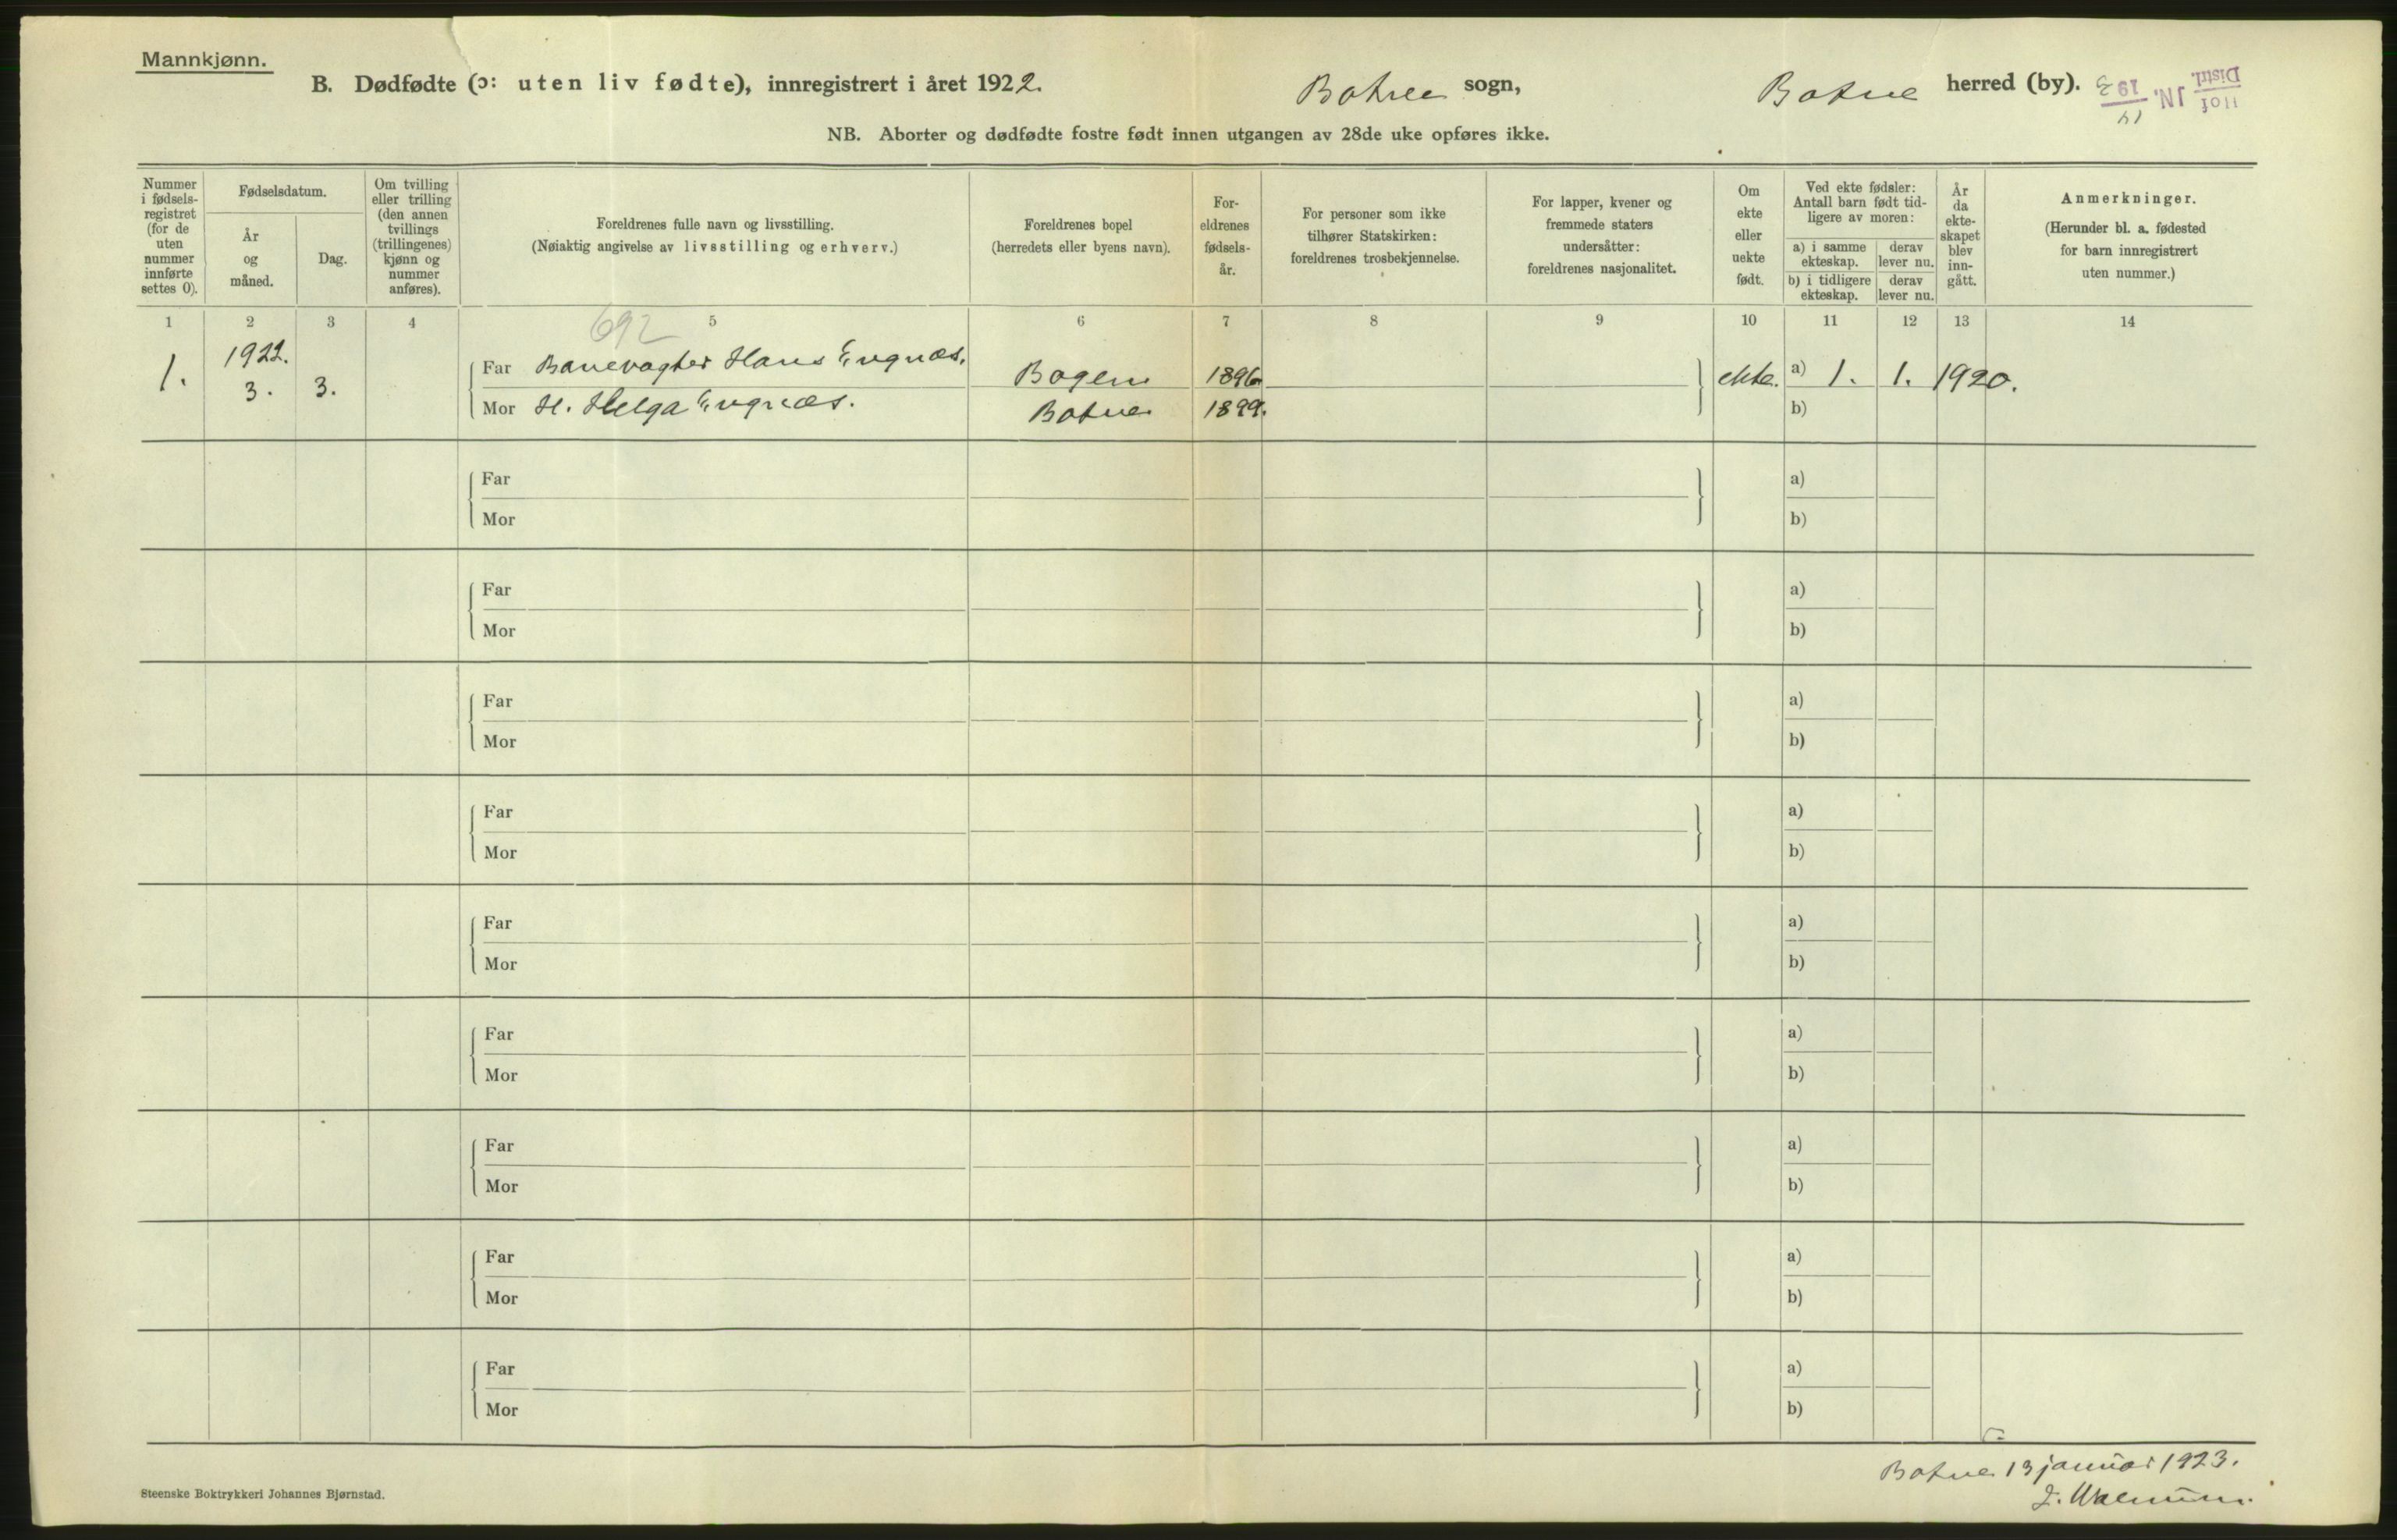 Mannkjønn.
B. Dødfødte (ɔ: uten liv fødte), innregistrert i året 1922. Botne sogn, Botne herred (by).
Hof Distri. JN. 14/1 1923
NB. Aborter og dødfødte fostre født innen utgangen av 28de uke opføres ikke.
Nummer i fødsels-registret (for de uten nummer innførte settes 0).
Fødselsdatum.
År og måned.
Dag.
Om tvilling eller trilling (den annen tvillings (trillingenes) kjønn og nummer anføres).
Foreldrenes fulle navn og livsstilling.
(Nøiaktig angivelse av livsstilling og erhverv.)
Foreldrenes bopel
(herredets eller byens navn).
For-eldrenes fødsels-år.
For personer som ikke tilhører Statskirken: foreldrenes trosbekjennelse.
For lapper, kvener og fremmede staters undersåtter: foreldrenes nasjonalitet.
Om ekte eller uekte født.
Ved ekte fødsler: Antall barn født tid-ligere av moren:
a) i samme ekteskap.
derav lever nu.
b) i tidligere ekteskap.
derav lever nu.
År da ekte-skapet blev inn-gått.
Anmerkninger.
(Herunder bl. a. fødested for barn innregistrert uten nummer.)
1 2 3 4 5 6 7 8 9 10 11 12 13 14
692
1. 1922. 3. 3.
Far Banevagter Hans Engnæs. Bogen 1896 ekte. a) 1. 1. 1920.
Mor H. Helga Engnæs. Botne 1899. b)
Far a)
Mor b)
Far a)
Mor b)
Far a)
Mor b)
Far a)
Mor b)
Far a)
Mor b)
Far a)
Mor b)
Far a)
Mor b)
Far a)
Mor b)
Far a)
Mor b)
Botne 13 januar 1923.
Steenske Boktrykkeri Johannes Bjørnstad.